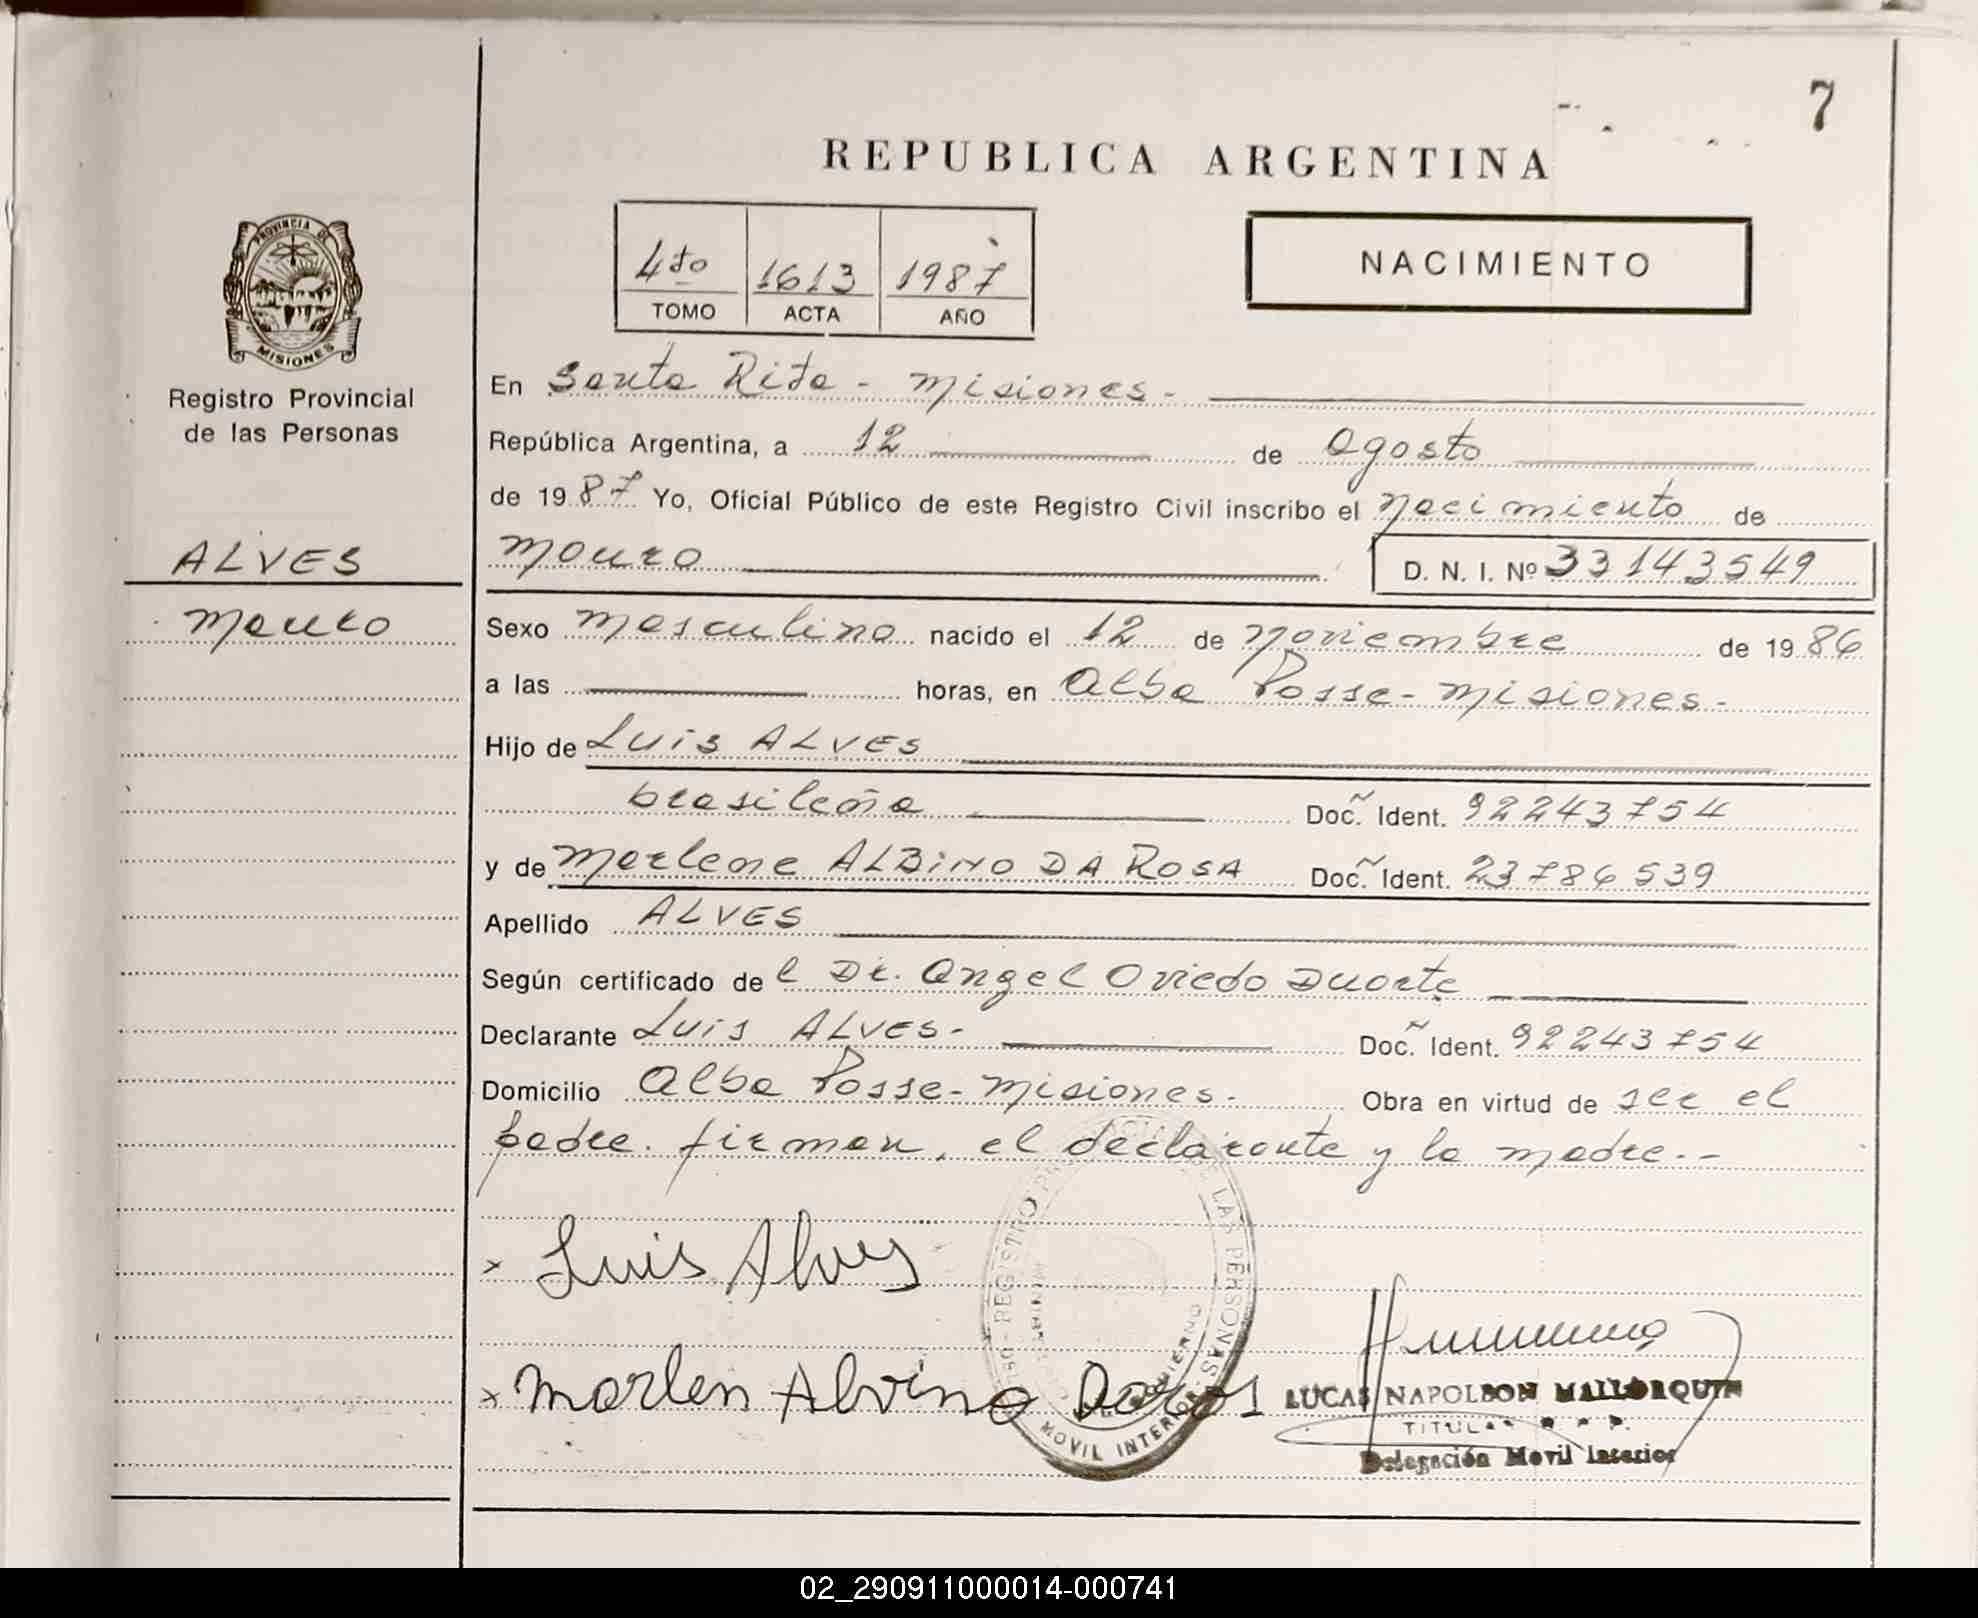 7
REPUBLICA ARGENTINA
PROVINCIA DE
MISIONES
4to 1613 1987
TOMO ACTA AÑO
NACIMIENTO
Registro Provincial
de las Personas
ALVES
Mauro
En Santa Rita - Misiones -
República Argentina, a 12 de Agosto
de 1987 Yo, Oficial Público de este Registro Civil inscribo el Nacimiento de
Mauro D. N. I. Nº 33143549
Sexo Masculino nacido el 12 de Noviembre de 1986
a las horas, en Alba Posse - Misiones -
Hijo de Luis ALVES
brasileña Doc. Ident. 92243754
y de Marlene ALBINO DA ROSA Doc. Ident. 23786539
Apellido ALVES
Según certificado del Dr. Angel Oviedo Duarte
Declarante Luis ALVES - Doc. Ident. 92243754
Domicilio Alba Posse - Misiones - Obra en virtud de ser el
padre. firman, el declarante y la madre.-
x Luis Alves
x Marlen Alvino Daros
REGISTRO DE LAS PERSONAS
MOVIL INTERIOR
LUCAS NAPOLEON MALLORQUIN
TITULAR
Delegación Movil Interior
02_290911000014-000741